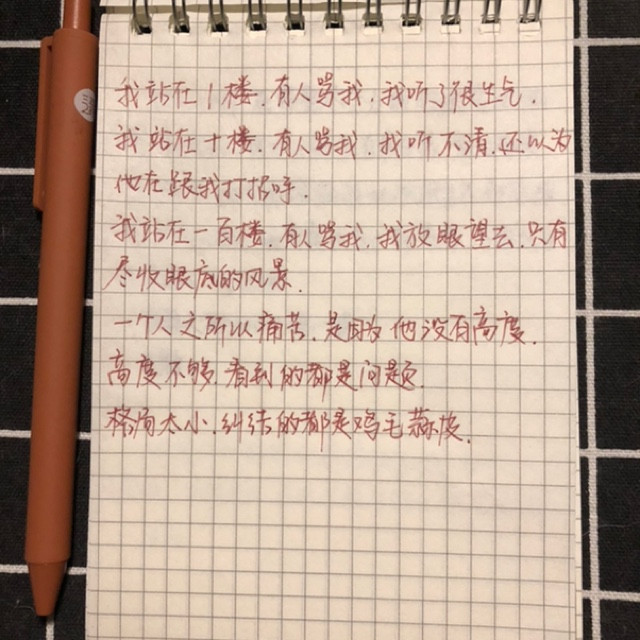 我站在1楼.有人骂我.我听了很生气.
我站在十楼.有人骂我.我听不清.还以为
他在跟我打招呼.
我站在一百楼.有人骂我.我放眼望去.只有
尽收眼底的风景.
一个人之所以痛苦.是因为他没有高度.
高度不够.看到的都是问题.
格局太小.纠结的都是鸡毛蒜皮.